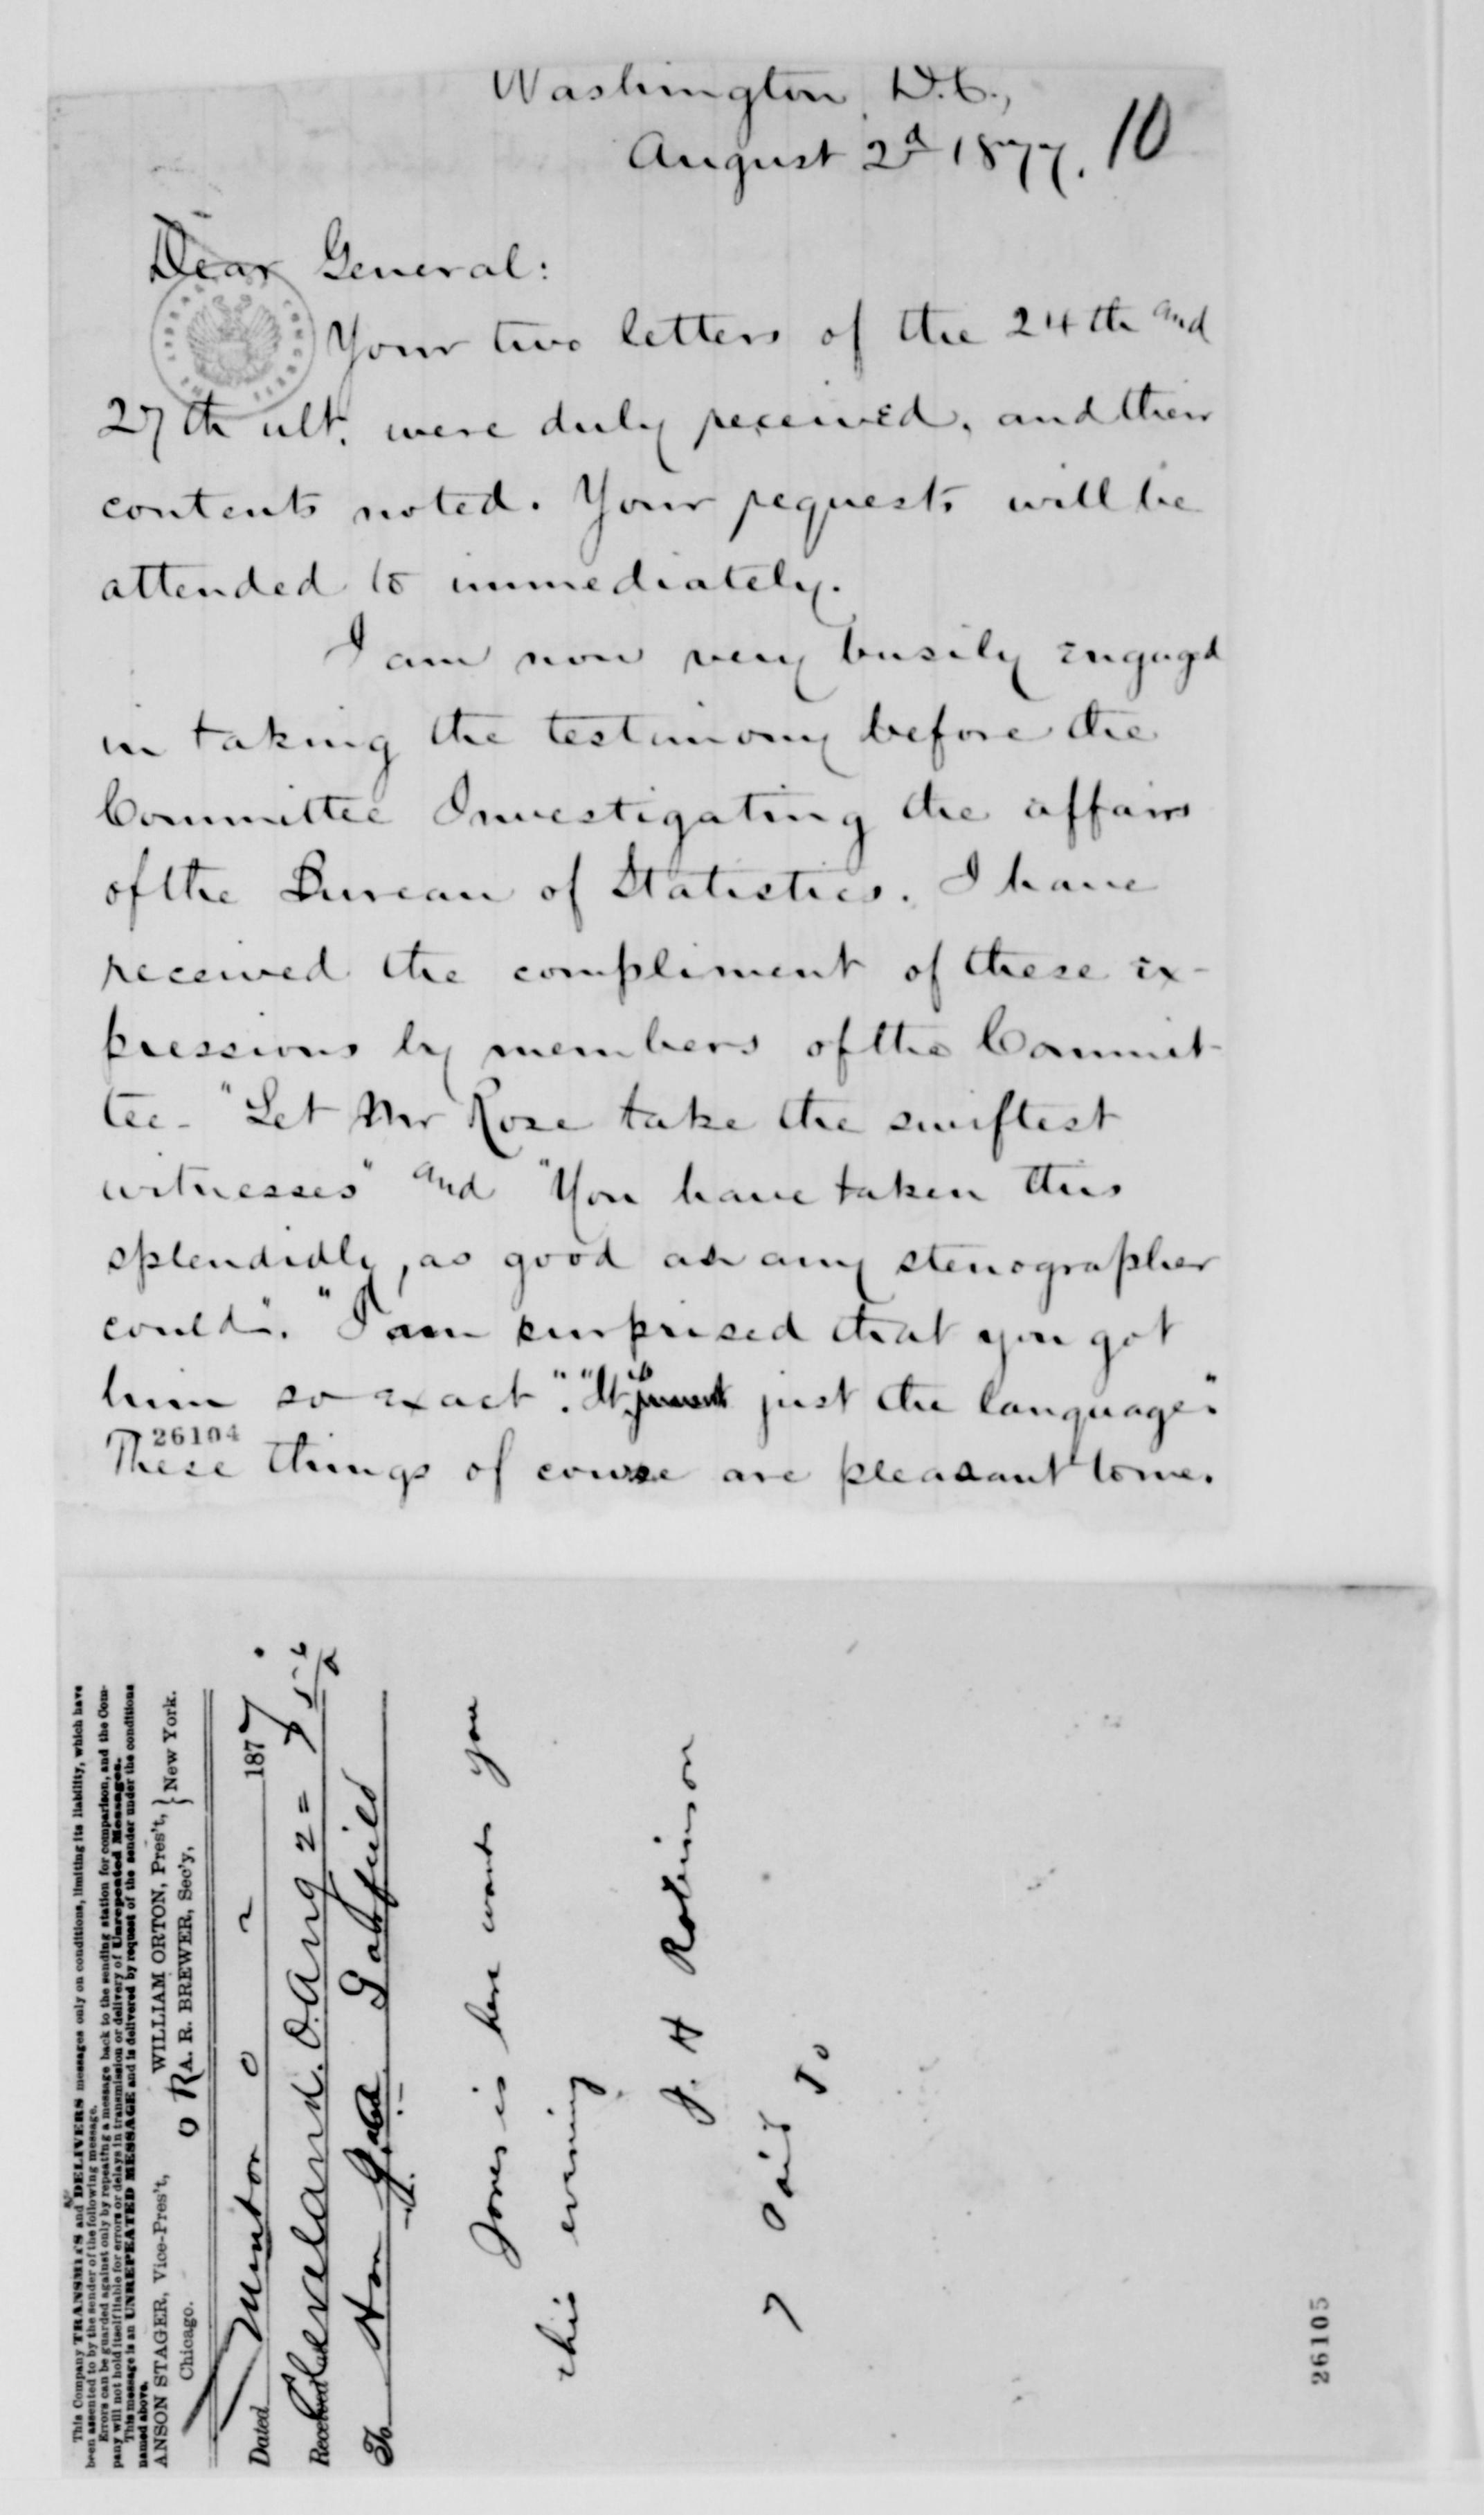 Washington D.C.,
August 2d 1877. 10
Dear General:
Your two letters of the 24th and
27th ult. were duly received, and their
contents noted. Your requests will be
attended to immediately.
I am now very busily engaged
in taking the testimony before the
Committee Investigating the affairs
of the Bureau of Statistics. I have
received the compliment of these ex-
pressions by members of the Commit-
tee - "Let Mr Rose take the swiftest
witnesses" and "You have taken this
splendidly, as good as any stenographer
could". "I am surprised that you got
him so exact". "It is just the language."
26104
These things of course are pleasant to me.
This Company TRANSMITS and DELIVERS messages only on conditions, limiting its liability, which have
been assented to by the sender of the following message.
Errors can be guarded against only by repeating a message back to the sending station for comparison, and the Com-
pany will not hold itself liable for errors or delays in transmission or delivery of Unrepeated Messages.
This message is an UNREPEATED MESSAGE and is delivered by request of the sender under the conditions
named above.
ANSON STAGER, Vice-Pres't, WILLIAM ORTON, Pres't, } New York.
Chicago. A. R. BREWER, Sec'y,
Dated Mentor O 2 1877
Received Cleveland. O. Aug 2 =
To Hon Garfield
Jones is here wants you
this evening
J. H Robinson
7 Paid
26105